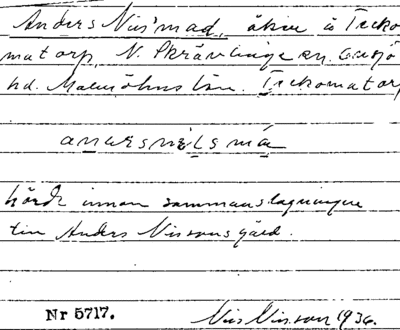 Anders Nils' mad, åker å Tecko
matorp, N. Skrävlinge sn. Luggude
hd. Malmöhus län. Teckomatorp
anərsnìlsmá
hörde innan sammanslagningen
till Anders Nilssons gård.
Nr 5717. Nils Nilsson 1936.